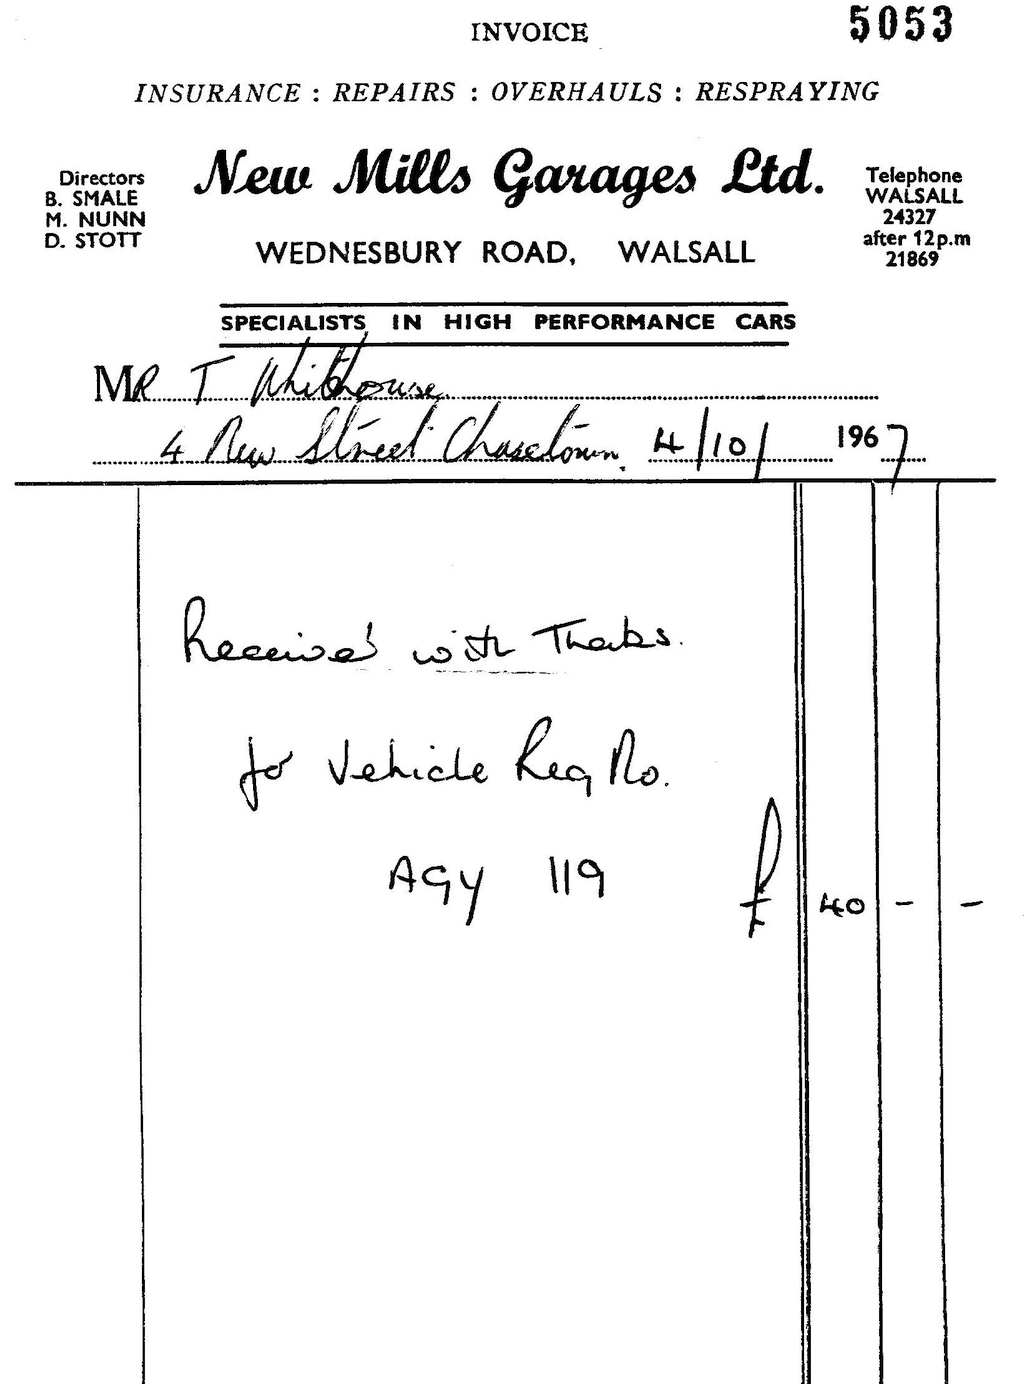 INVOICE 5053
INSURANCE : REPAIRS : OVERHAULS : RESPRAYING
New Mills Garages Ltd.
WEDNESBURY ROAD, WALSALL
Directors
B. SMALE
M. NUNN
D. STOTT
Telephone
WALSALL
24327
after 12p.m
21869
SPECIALISTS IN HIGH PERFORMANCE CARS
MR T Whitehouse
4 New Street Chasetown. 4/10/ 1967
Received with Thanks.
for Vehicle Reg No.
AGY 119 £ 40 - -